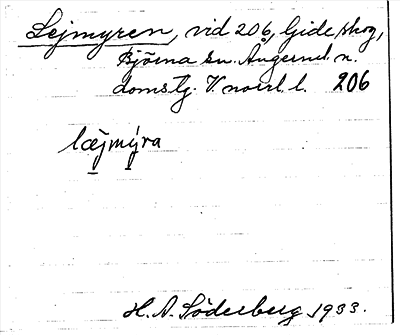 Lejmyren, vid 206, Gide, skog,
Björna sn. Ångerml. n.
doms.tg. V. norrl. l. 206
læjmýra
H. A. Söderberg 1933.